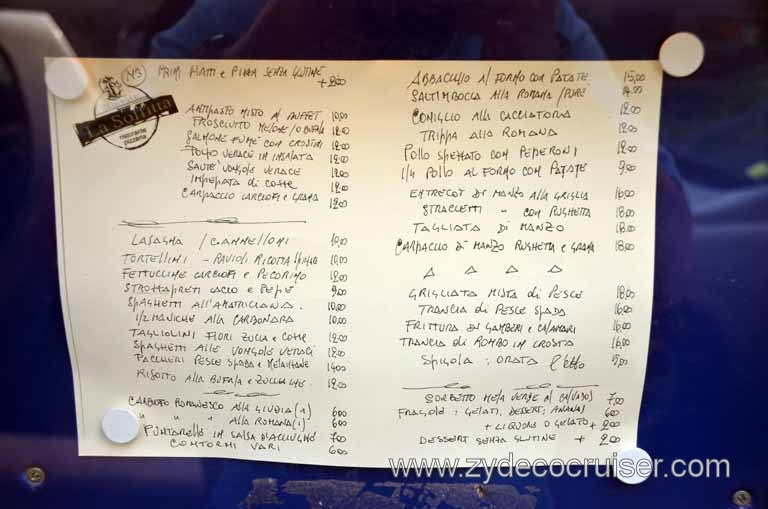 N°3 PRIMI PIATTI e PIZZA SENZA GLUTINE
+ 2,00
La Soffitta
ristorante
pizzeria
ANTIPASTO MISTO AL BUFFET 10,00
PROSCIUTTO MELONE/O BUFALA 12,00
SALMONE FUMÉ CON CROSTINI 12,00
POLPO VERACE IN INSALATA 12,00
SAUTÉ VONGOLE VERACE 12,00
IMPEPATA DI COZZE 12,00
CARPACCIO CARCIOFI e GRANA 12,00
LASAGNA / CANNELLONI 10,00
TORTELLINI - RAVIOLI RICOTTA SPINACI 10,00
FETTUCCINE CARCIOFI e PECORINO 12,00
STROZZAPRETI CACIO e PEPE 9,00
SPAGHETTI ALL'AMATRICIANA. 10,00
1/2 MANICHE ALLA CARBONARA 10,00
TAGLIOLINI FIORI ZUCCA e COZZE 12,00
SPAGHETTI ALLE VONGOLE VERACI 12,00
PACCHERI PESCE SPADA e MELANZANE 14,00
RISOTTO ALLA BUFALA e ZUCCHINE. 12,00
CARCIOFO ROMANESCO ALLA GIUDIA (1) 6,00
" " " ALLA ROMANA (1) 6,00
PUNTARELLE IN SALSA D'ACCIUGHE 7,00
CONTORNI VARI 6,00
ABBACCHIO AL FORNO CON PATATE 15,00
SALTIMBOCCA ALLA ROMANA / PURÉ 14,00
CONIGLIO ALLA CACCIATORA 12,00
TRIPPA ALLA ROMANA 12,00
POLLO SPEZZATO CON PEPERONI 12,00
1/4 POLLO AL FORNO CON PATATE 9,00
ENTRECOT DI MANZO ALLA GRIGLIA 16,00
STRACCETTI " CON RUGHETTA 18,00
TAGLIATA DI MANZO 18,00
CARPACCIO DI MANZO RUGHETTA e GRANA 18,00
GRIGLIATA MISTA di PESCE 18,00
TRANCIA di PESCE SPADA 16,00
FRITTURA DI GAMBERI e CALAMARI 16,00
TRANCIA di ROMBO IN CROSTA 16,00
SPIGOLA : ORATA l'etto 5,00
SORBETTO MELA VERDE AL CALVADOS 7,00
FRAGOLE : GELATI, DESSERT; ANANAS 6,00
+ LIQUORE O GELATO + 2,00
DESSERT SENZA GLUTINE + 2,00
www.zydecocruiser.com